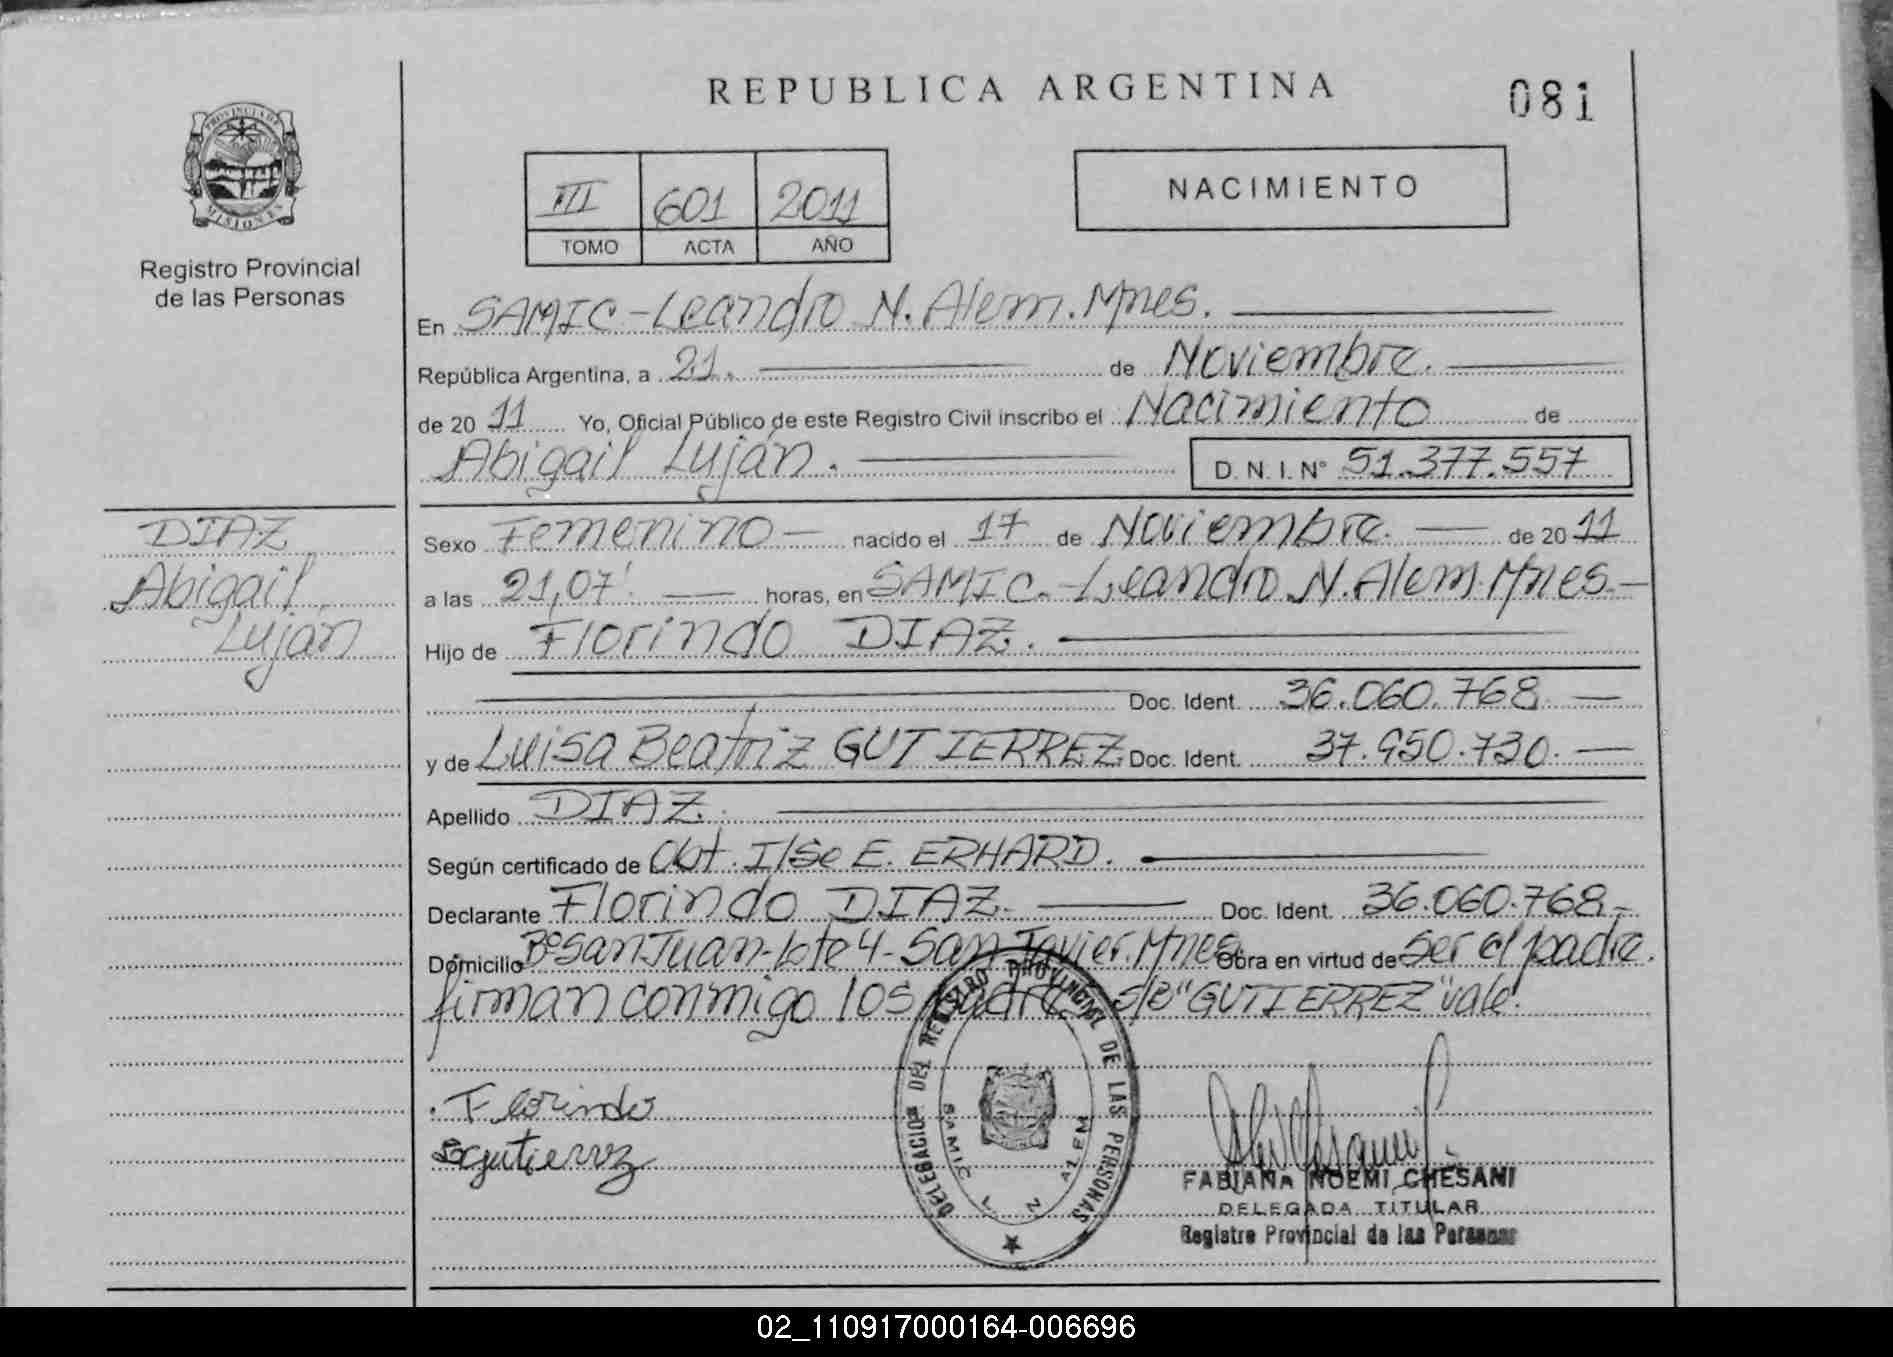 REPUBLICA ARGENTINA
081
PROVINCIA DE
MISIONES
Registro Provincial
de las Personas
III 601 2011
TOMO ACTA AÑO
NACIMIENTO
En SAMIC-Leandro N. Alem. Mnes.
República Argentina, a 21. de Noviembre.
de 20 11 Yo, Oficial Público de este Registro Civil inscribo el Nacimiento de
Abigail Luján. D. N. I. N° 51.377.557
DIAZ
Abigail
Luján
Sexo Femenino nacido el 17 de Noviembre. de 20 11
a las 21,07' horas, en SAMIC.-Leandro N. Alem. Mnes.-
Hijo de Florindo DIAZ.
Doc. Ident. 36.060.768.
y de Luisa Beatriz GUTIERREZ Doc. Ident. 37.950.730.
Apellido DIAZ.
Según certificado de Obt. Ilse E. ERHARD.
Declarante Florindo DIAZ. Doc. Ident. 36.060.768,-
Domicilio B° San Juan-Lote 4-San Javier. Mnes Obra en virtud de ser el padre.
firman conmigo los padres s/e "GUTIERREZ" vale.
Florindo
Gutierrez
DELEGACION DEL REGISTRO PROVINCIAL DE LAS PERSONAS
SAMIC L N ALEM
FABIANA NOEMI CHESANI
DELEGADA TITULAR
Registro Provincial de las Personas
02_110917000164-006696